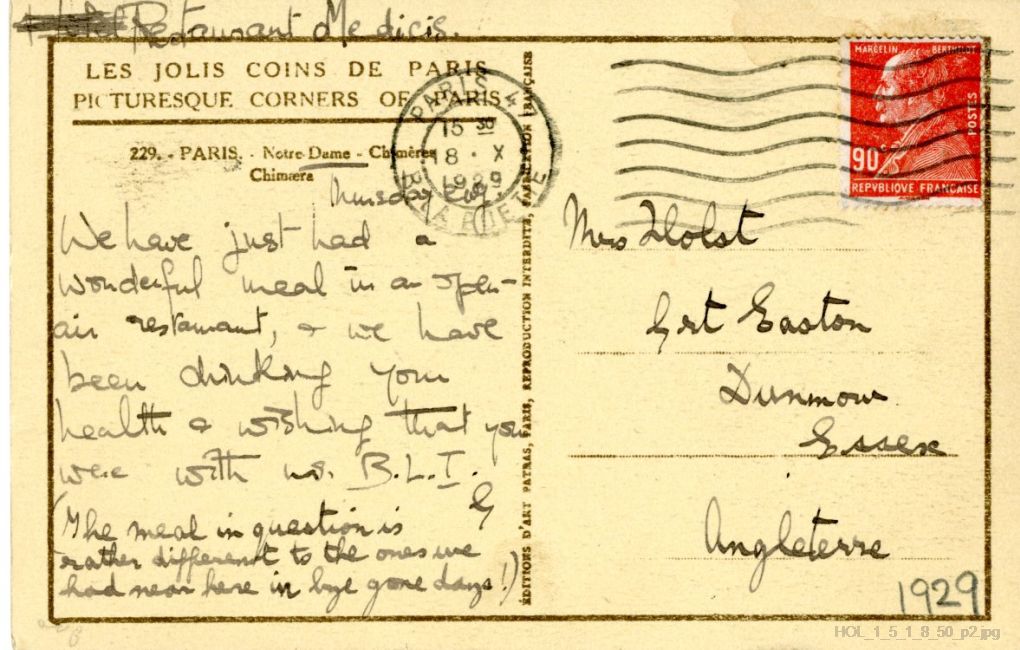 Restaurant Medicis.
LES JOLIS COINS DE PARIS
PICTURESQUE CORNERS OF PARIS
229. - PARIS. - Notre-Dame - Chimères
Chimæra
Thursday evg.
We have just had a
wonderful meal in an open-
air restaurant, & we have
been drinking your
health & wishing that you
were with us. B.L.I.
G
(The meal in question is
rather different to the ones we
had near here in bye gone days!)
ÉDITIONS D'ART PATRAS, PARIS, REPRODUCTION INTERDITE, FABRICATION FRANÇAISE
PARIS
15 30
18 · X
1929
MARCELIN BERTHELOT
POSTES
90
REPVBLIQVE FRANÇAISE
Mrs Holst
Grt Easton
Dunmow
Essex
Angleterre
1929
HOL_1_5_1_8_50_p2.jpg